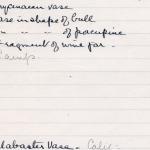 Mycenaean vase
ase in shape of bull
" " " of porcupine
Fragment of wine jar.
Lamps
labaster Vase. -